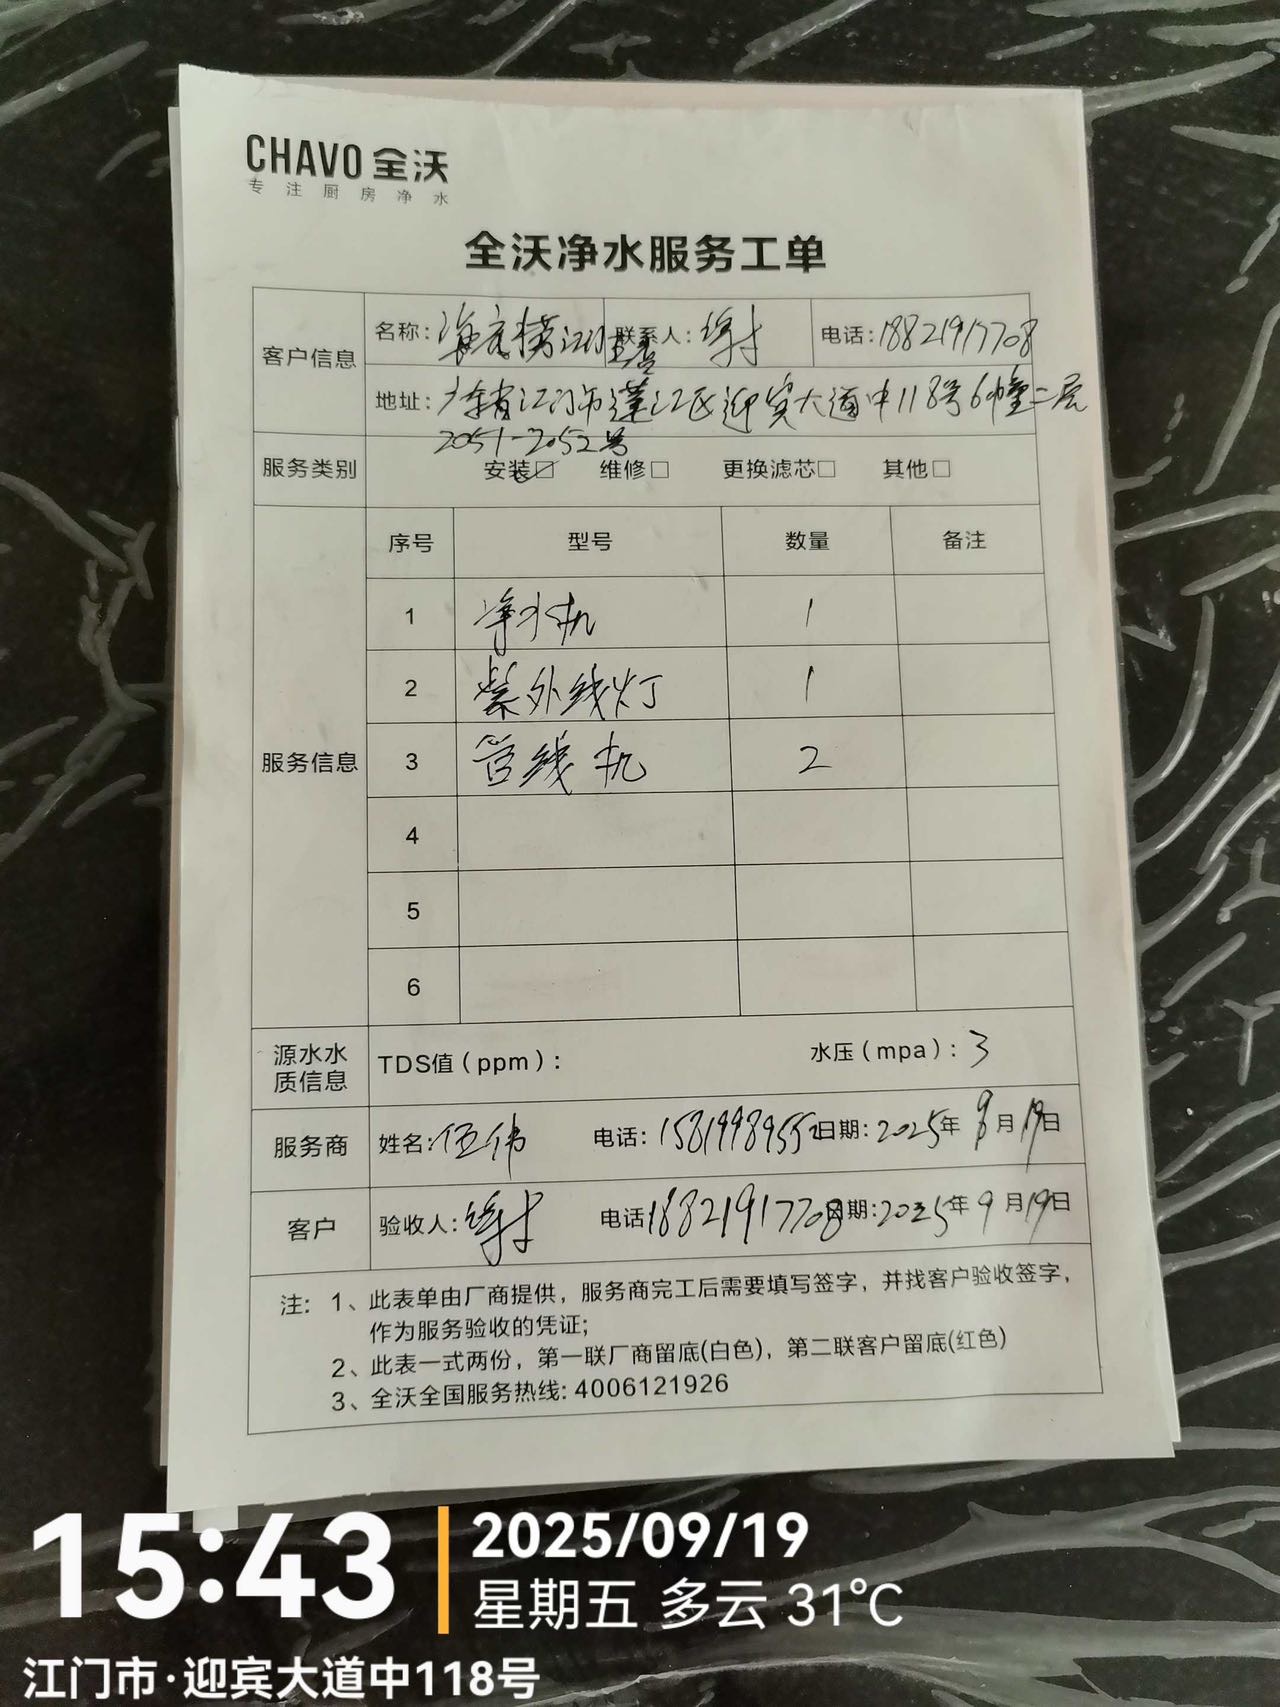 CHAVO 全沃
专注厨房净水
全沃净水服务工单
客户信息 名称: 江门 联系人: 电话: 18821917708
地址: 广东省江门市蓬江区迎宾大道中118号6幢二层
2051-2052号
服务类别 安装☑ 维修□ 更换滤芯□ 其他□
服务信息 序号 型号 数量 备注
1 净水机 1
2 紫外线灯 1
3 管线机 2
4
5
6
源水水质信息 TDS值(ppm): 水压(mpa): 3
服务商 姓名: 伍伟 电话: 15819989552 日期: 2025年9月19日
客户 验收人: 电话 18821917708 日期: 2025年9月19日
注: 1、此表单由厂商提供，服务商完工后需要填写签字，并找客户验收签字，
作为服务验收的凭证;
2、此表一式两份，第一联厂商留底(白色)，第二联客户留底(红色)
3、全沃全国服务热线: 4006121926
15:43
2025/09/19
星期五 多云 31℃
江门市·迎宾大道中118号